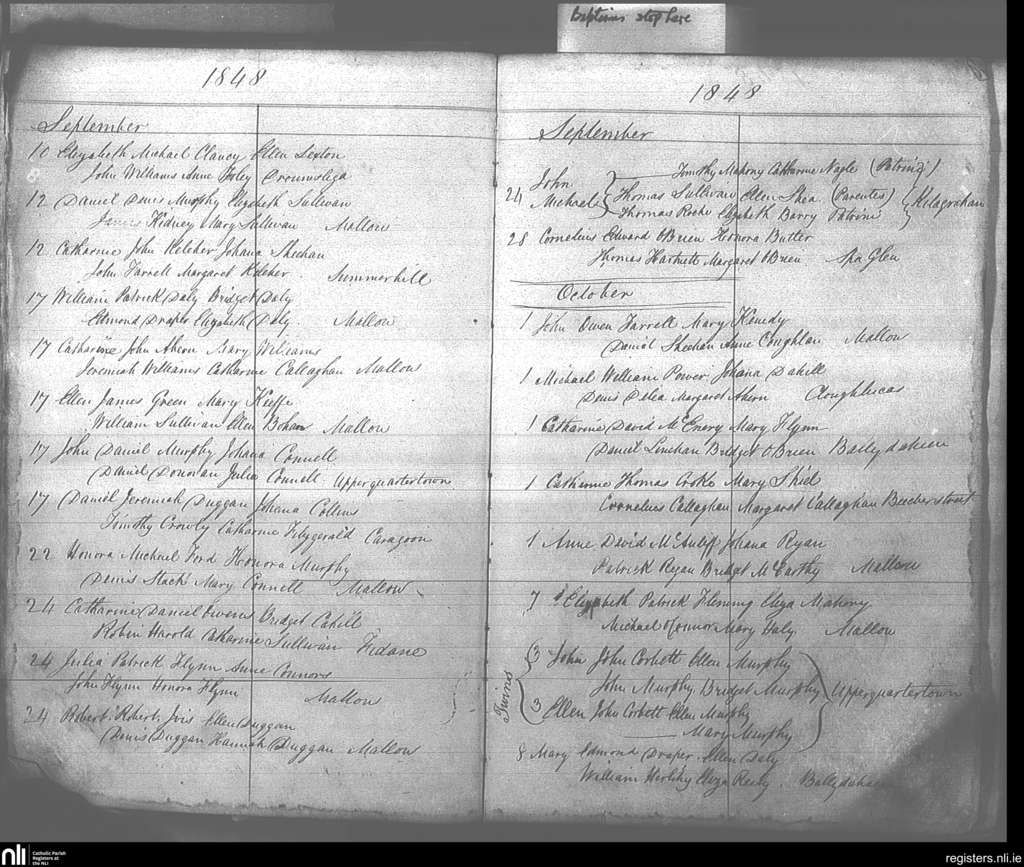 Baptisms stop here
1848
September
10 Elizabeth Michael Clancy Ellen Sexton
John Williams Anne Foley Dromsligo
12 Daniel Denis Murphy Elizabeth Sullivan
James Kidney Mary Sullivan Mallow
12 Catharine John Keleher Johana Sheehan
John Farrell Margaret Keleher Summerhill
17 William Patrick Daly Bridget Daly
Edmond Draper Elizabeth Daly. Mallow
17 Catharine John Ahern Mary Williams
Jeremiah Williams Catharine Callaghan Mallow
17 Ellen James Green Mary Keeffe
William Sullivan Ellen Bohan Mallow
17 John Daniel Murphy Johana Connell
Daniel Donovan Julia Connell Upperquartertown
17 Daniel Jeremiah Duggan Johana Collins
Timothy Crowly Catharine Fitzgerald Caragoon
22 Honora Michael Ford Honora Murphy
Denis Stack Mary Connell Mallow
24 Catharine Daniel Owens Bridget Cahill
Robin Harold Catharine Sullivan Fidane
24 Julia Patrick Flynn Anne Connors
John Flynn Honora Flynn Mallow
24 Robert Robert Ellen Duggan
Denis Duggan Hannah Duggan Mallow
1848
September
Timothy Mahony Catharine Nagle (Patrini)
24 John Michael Thomas Sullivan Ellen Shea (Parentes) Kilagrohan
Thomas Roche Elizabeth Barry Patrini
28 Cornelius Edward OBrien Honora Butler
Thomas Hartnett Margaret OBrien Spa Glen
October
1 John Owen Farrell Mary Kenedy
Daniel Sheehan Anne Coughlan Mallow
1 Michael William Power Johana Dahill
Denis Delia Margaret Ahern Cloughlucas
1 Catharine David McEnery Mary Flynn
Daniel Linehan Bridget OBrien Ballydaheen
1 Catharine Thomas Cooke Mary Shiel
Cornelius Callaghan Margaret Callaghan Beecherstreet
1 Anne David McAuliff Johana Ryan
Patrick Ryan Bridget McCarthy Mallow
7 Elizabeth Patrick Fleming Eliza Mahony
Michael OConnor Mary Daly. Mallow
Twins
3 John John Corbett Ellen Murphy
John Murphy Bridget Murphy Upperquartertown
3 Ellen John Corbett Ellen Murphy
Mary Murphy
8 Mary Edmond Draper Ellen Daly
William Herlihy Eliza Ballydaheen
nli
Catholic Parish
Registers at
the NLI
registers.nli.ie